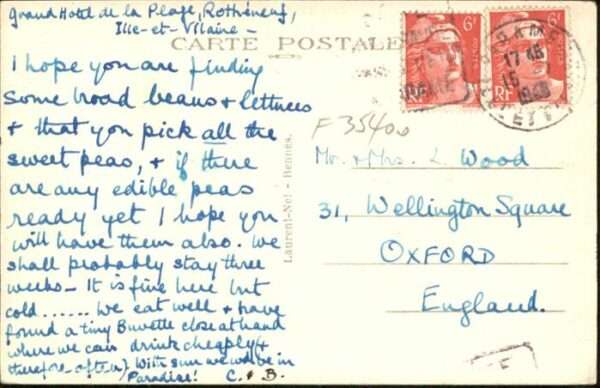 Grand Hotel de la Plage, Rothéneuf,
Ille-et-Vilaine -
CARTE POSTALE
I hope you are finding
some broad beans & lettuces
& that you pick all the
sweet peas, & if there
are any edible peas
ready yet I hope you
will have them also. We
shall probably stay three
weeks - It is fine here but
cold...... We eat well & have
found a tiny Buvette close at hand
where we can drink cheaply (&
therefore often). With sun we wd be in
Paradise! C. & B.
Laurent-Nel - Rennes.
6F
POSTES
RF
6F
POSTES
RF
17 45
15
1948
F 35400
Mr. & Mrs. L. Wood
31, Wellington Square
OXFORD
England.